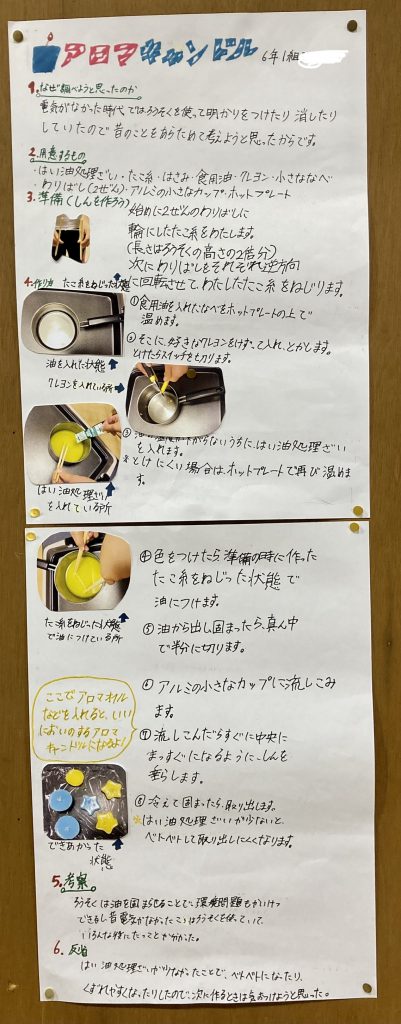 アロマキャンドル
6年1組
1.なぜ調べようと思ったのか
電気がなかった時代ではろうそくを使って明かりをつけたり消したり
していたので昔のことをあらためて考えようと思ったからです。
2.用意するもの
・はい油処理ざい・たこ糸・はさみ・食用油・クレヨン・小さななべ
・わりばし(2ぜん)・アルミの小さなカップ・ホットプレート
3.準備(しんを作ろう)
始めに2ぜんのわりばしに
輪にしたたこ糸をわたします。
(長さはろうそくの高さの2倍分)
次にわりばしをそれぞれ逆方向
に回転させて、わたしたたこ糸をねじります。
たこ糸をねじった状態
4.作り方
①食用油を入れたなべをホットプレートの上で
温めます。
油を入れた状態
②そこに、好きなクレヨンをけずって入れ、とかします。
とけたらスイッチを切ります。
クレヨンを入れている所
③ 下がらないうちに、はい油処理ざい
を入れます。
*とけにくい場合は、ホットプレートで再び温めま
す。
はい油処理ざい
を入れている所
④色をつけたら、準備の時に作った
たこ糸をねじった状態で
油につけます。
たこ糸をねじった状態
で油につけている所
⑤油から出し固まったら、真ん中
で半分に切ります。
⑥アルミの小さなカップに流しこみ
ます。
ここでアロマオイル
などを入れると、いい
においのするアロマ
キャンドルになるよ!
⑦流しこんだらすぐに中央に
まっすぐになるように、しんを
垂らします。
⑧冷えて固まったら、取り出します。
*はい油処理ざいが少ないと、
ベトベトして取り出しにくくなります。
できあがった
状態
5.考察
ろうそくは油を固まらせることで、環境問題も
できるし昔電気がなかったころはろうそくを使っていて、
いろんな役にたつことが分かった。
6.反省
はい油処理ざいがたりなかったことで、ベトベトになったり、
くずれやすくなったりしたので、次に作るときは気をつけようと思った。